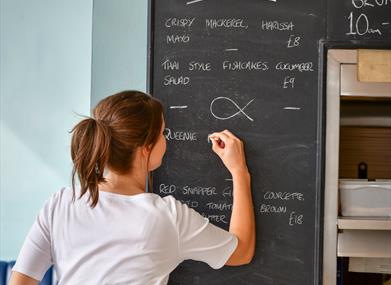 CRISPY MACKEREL, HARISSA
MAYO £8
THAI STYLE FISHCAKES, CUCUMBER
SALAD £9
QUEENIE
RED SNAPPER COURGETTE,
TOMATO
£18
10am -